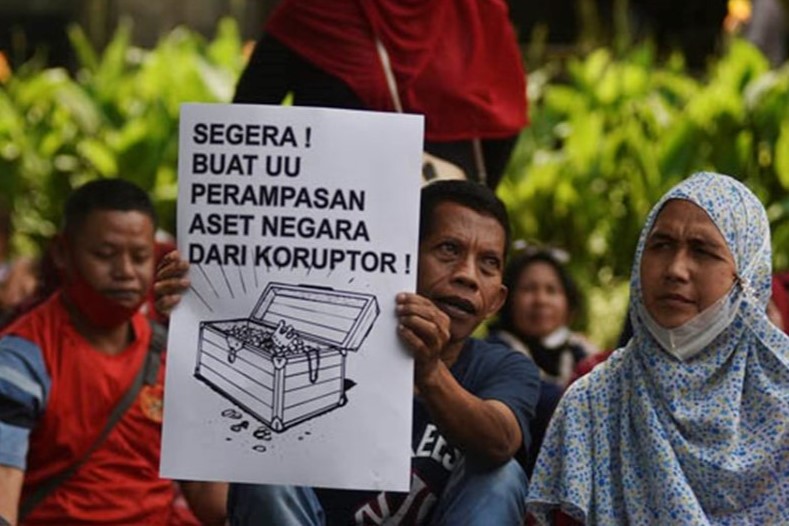 SEGERA !
BUAT UU
PERAMPASAN
ASET NEGARA
DARI KORUPTOR !